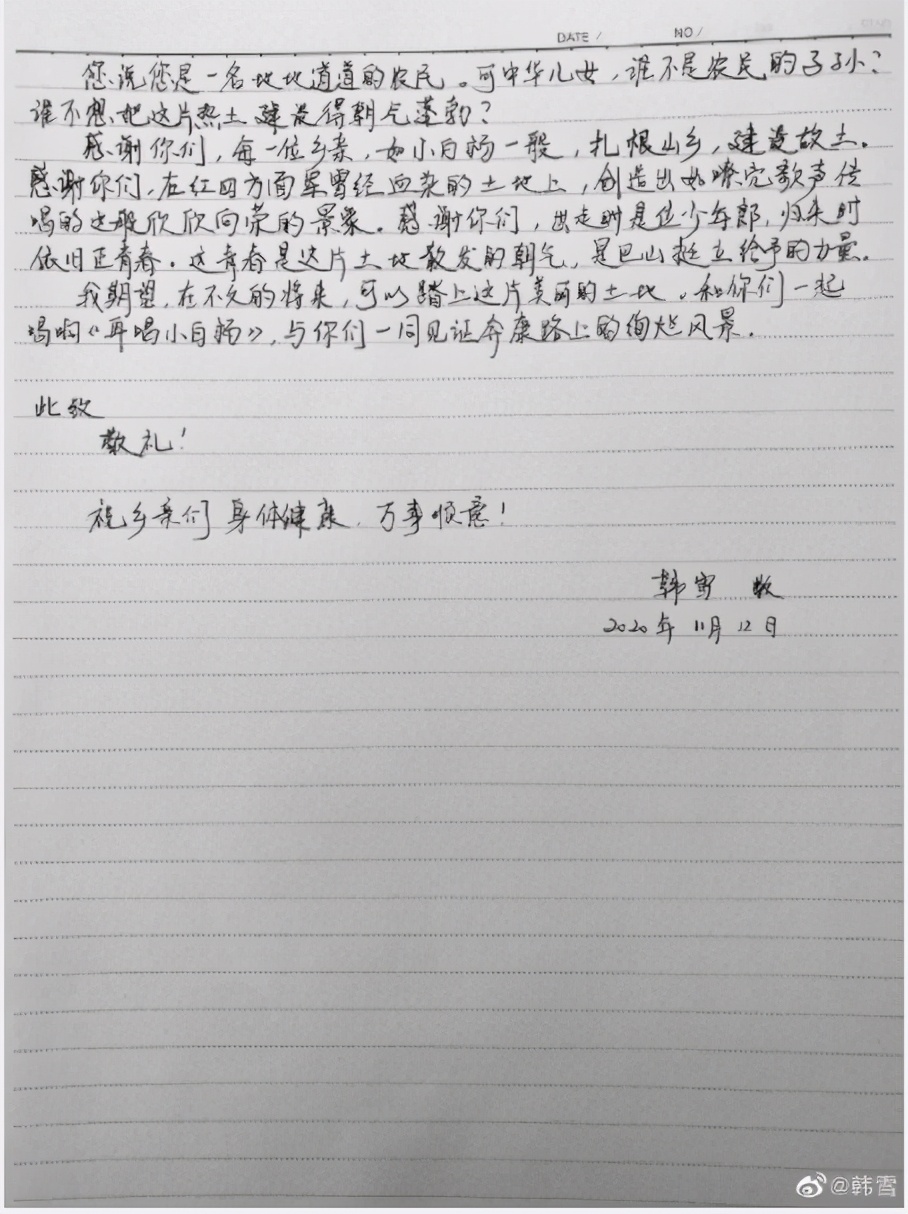 DATE / NO /
您说您是一名地地道道的农民。可中华儿女，谁不是农民的子孙？
谁不想把这片热土建设得朝气蓬勃？
感谢你们，每一位乡亲，如小白杨一般，扎根山乡，建设故土。
感谢你们，在红四方面军曾经血染的土地上，创造出如嘹亮歌声传
唱的这般欣欣向荣的景象。感谢你们，出走时是位少年郎，归来时
依旧正青春。这青春是这片土地散发的朝气，是巴山挺立给予的力量。
我期望，在不久的将来，可以踏上这片美丽的土地。和你们一起
唱响《再唱小白杨》，与你们一同见证奔康路上的绚烂风景。
此致
敬礼！
祝乡亲们身体健康，万事顺意！
韩雪 敬
2020年11月12日
@韩雪